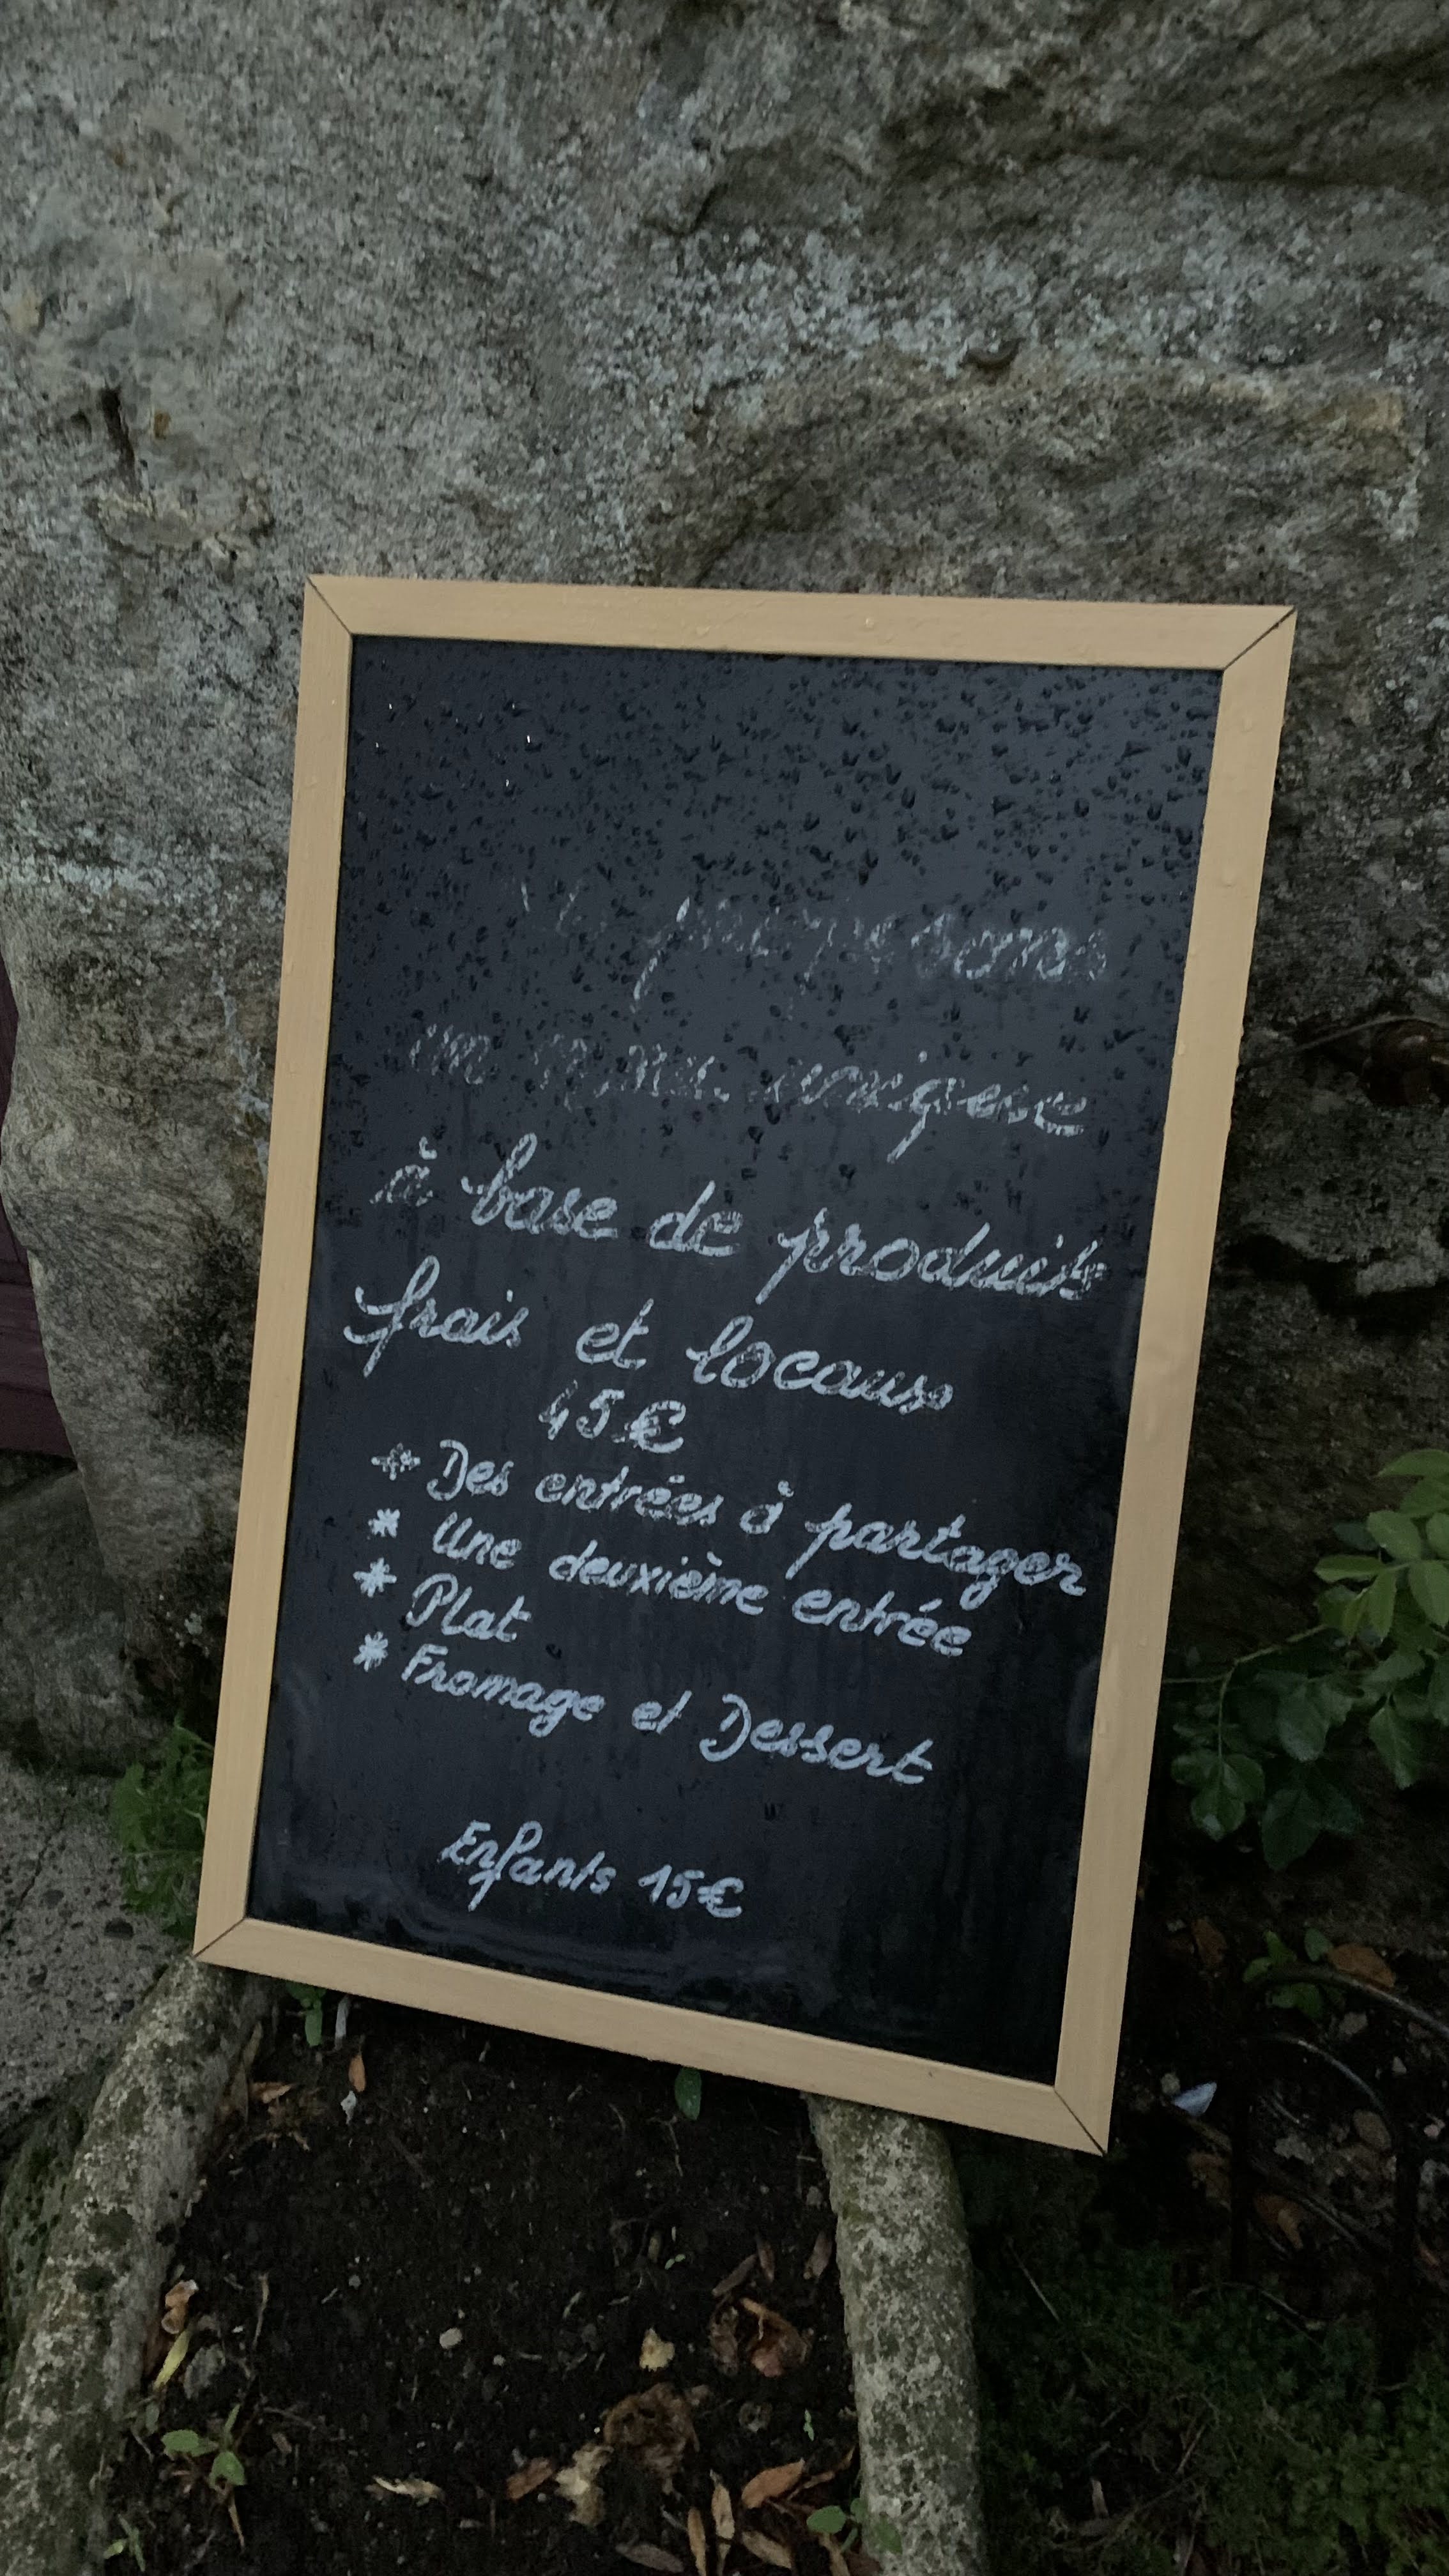 proposons
un menu unique
à base de produits
frais et locaux
45€
* Des entrées à partager
* Une deuxième entrée
* Plat
* Fromage et Dessert
Enfants 15€